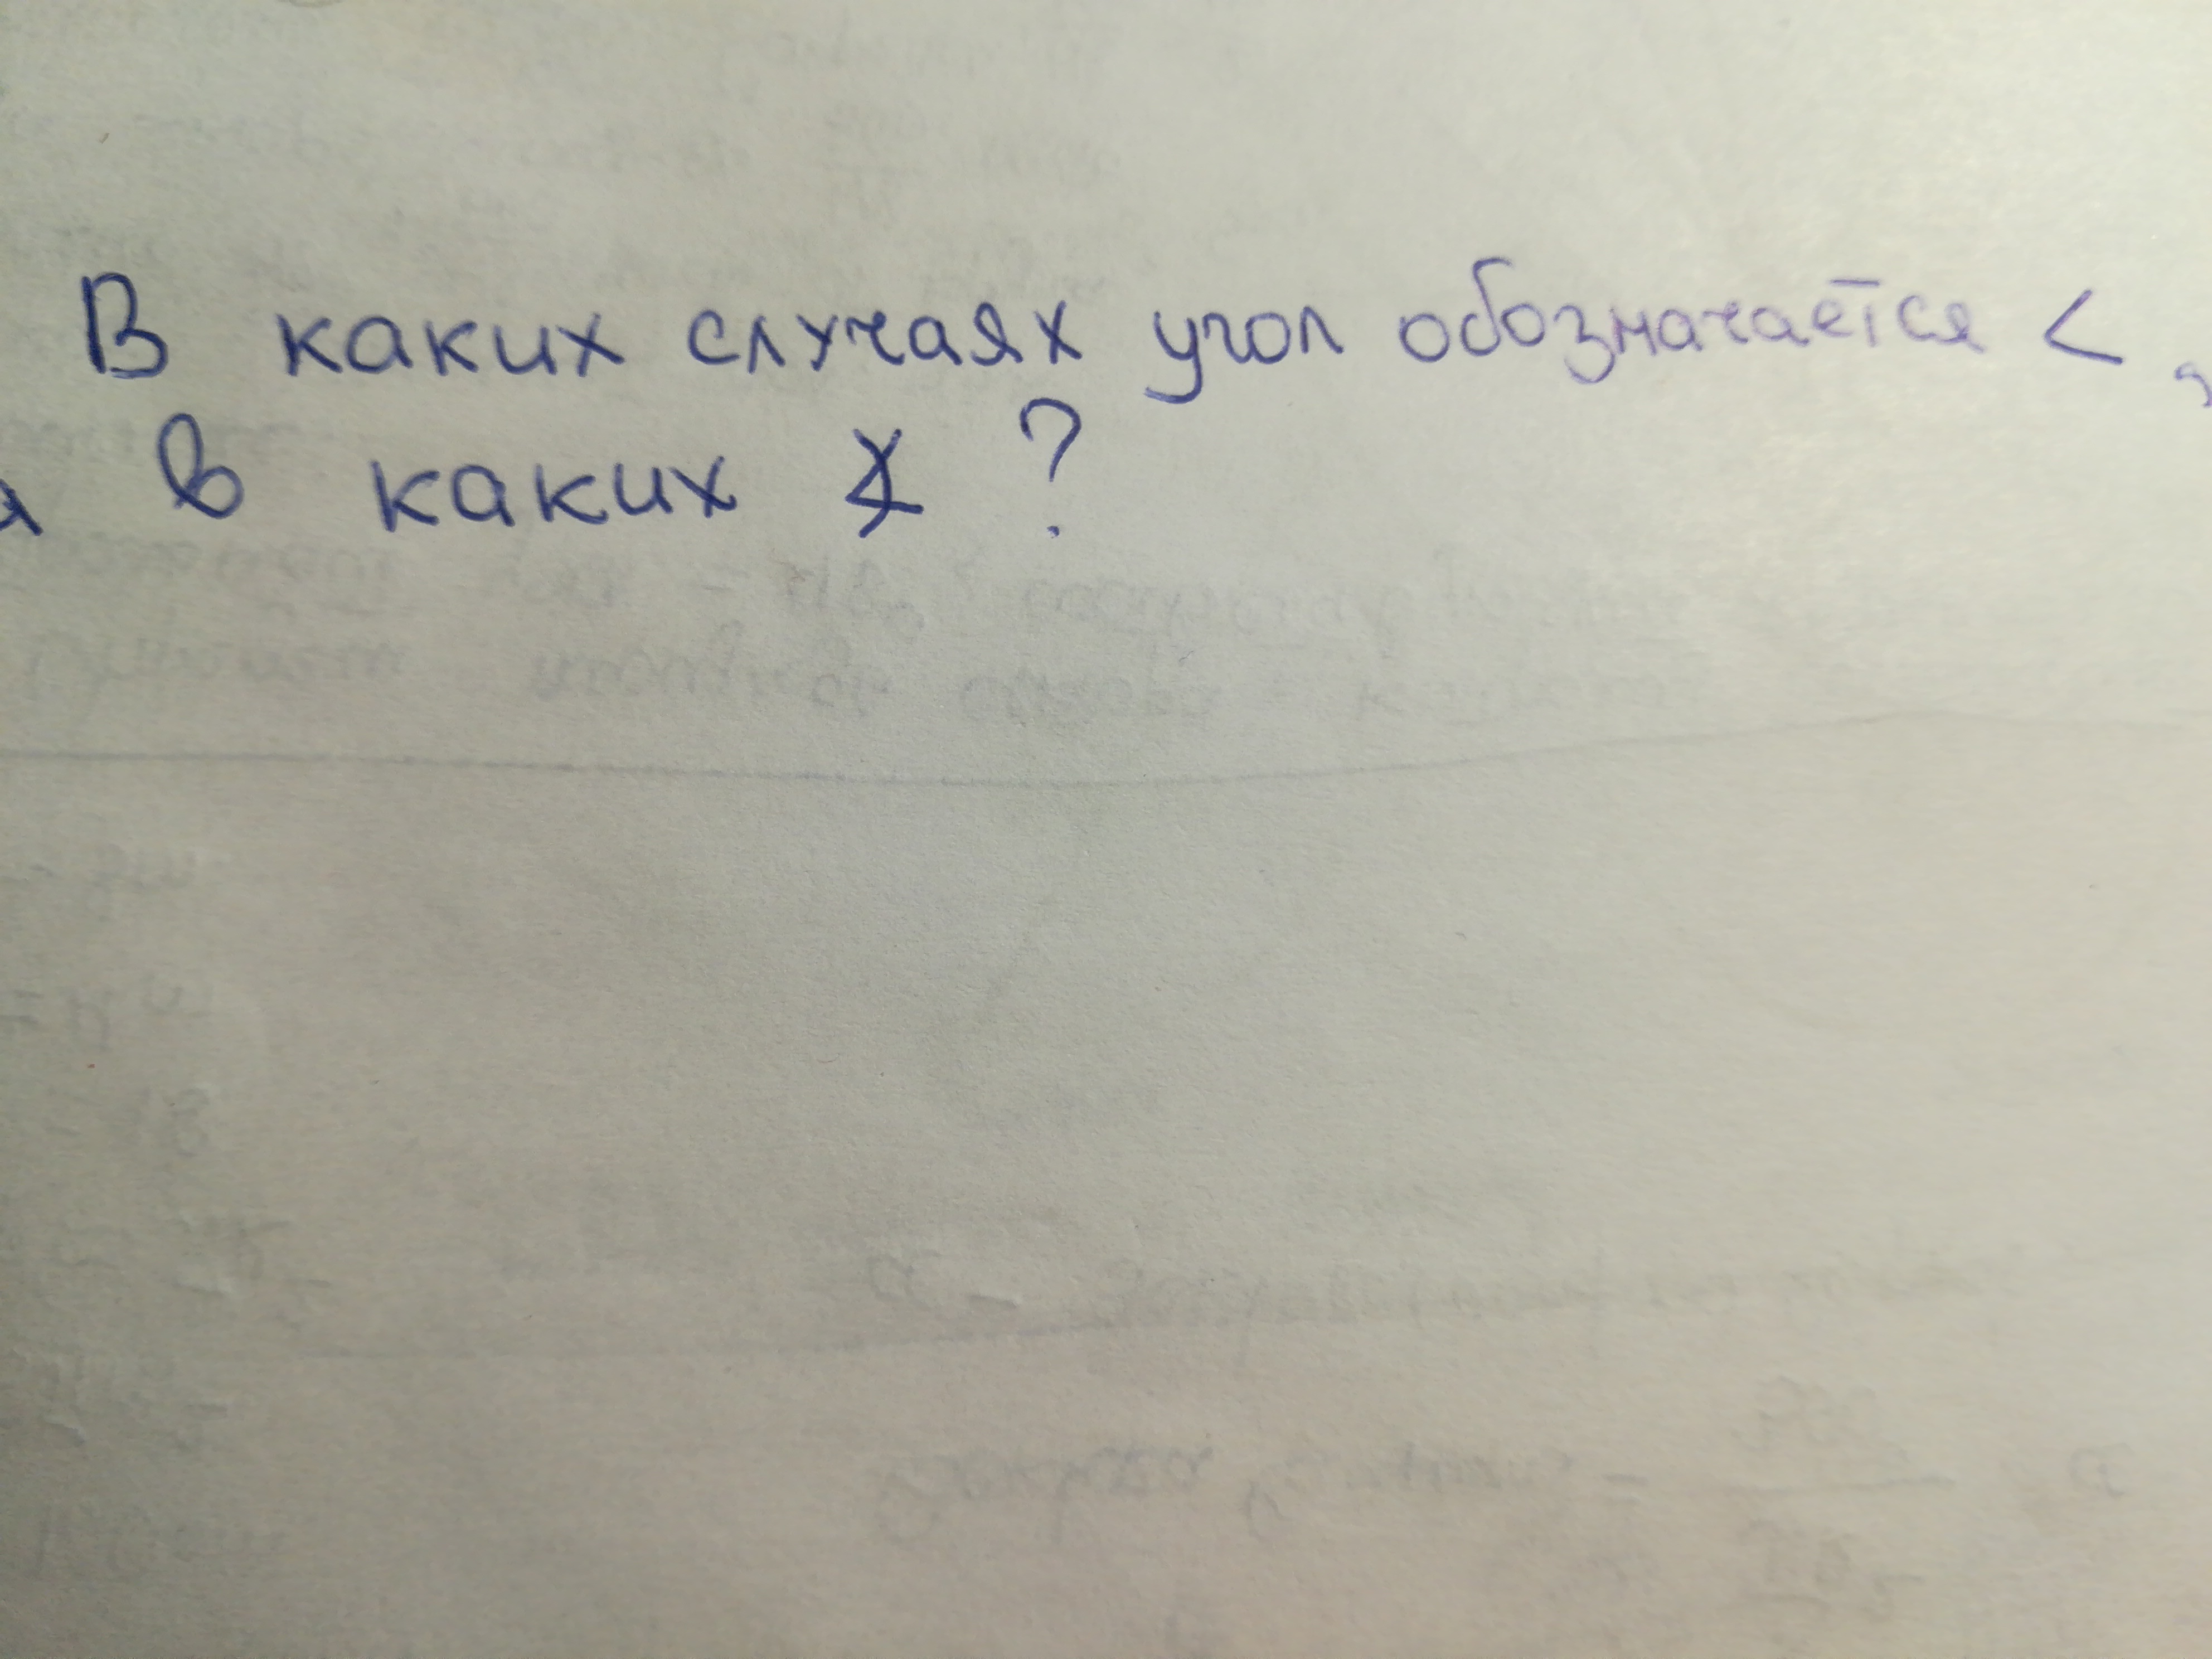 В каких случаях угол обозначается <,
а в каких ∢ ?